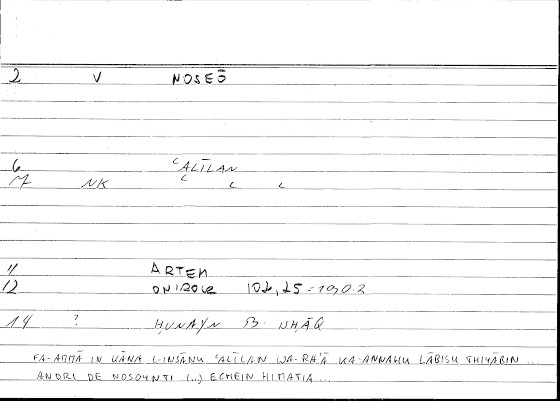 2 V NOSEŌ
6 ʿALĪLAN
NK
11 ARTEM
12 ONIROCR 102,25=190.2
14 ? ḤUNAYN B. ISḤĀQ
FA-AMMĀ IN KĀNA L-INSĀNU ʿALĪLAN WA-RAʾĀ KA-ANNAHU LĀBISU THIYĀBIN ...
ANDRI DE NOSOUNTI (..) ECHEIN HIMATIA ...